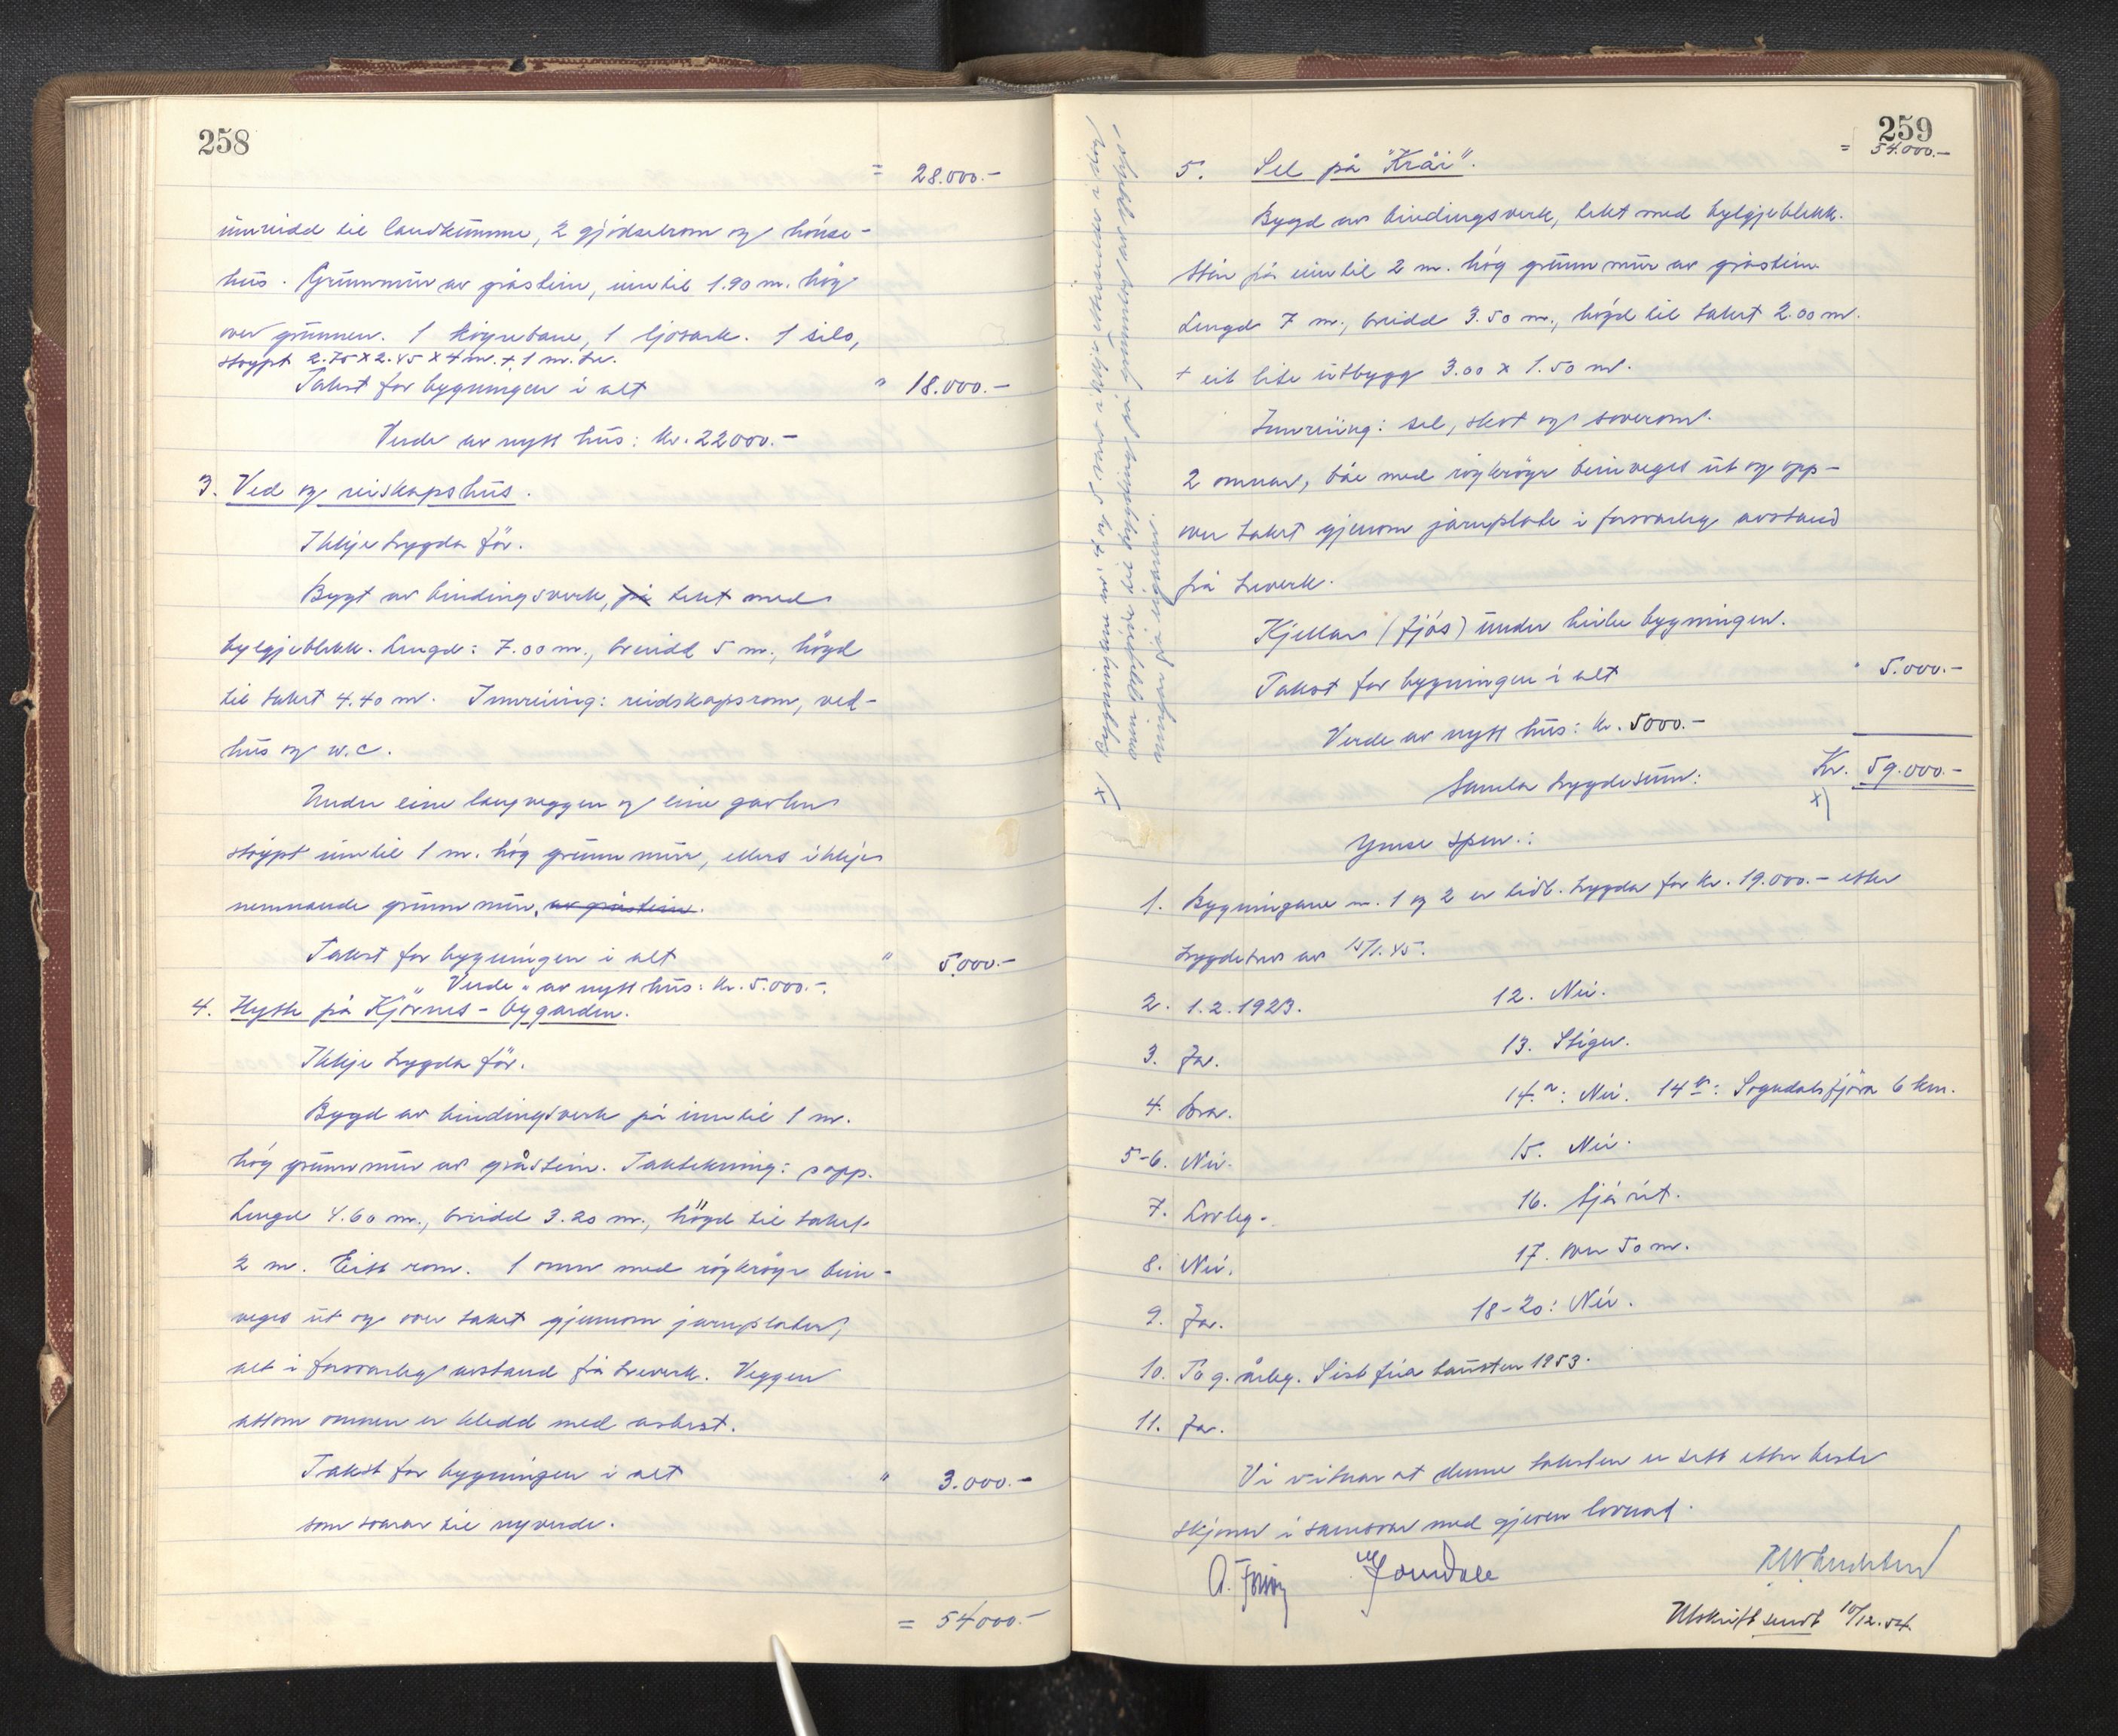 258
= 28.000.-
innreidd til landkumme, 2 gjødselrom og hønse-
hus. Grunnmur av gråstein, inntil 1.90 m. høg
over grunnen. 1 køyrebane, 1 ljosark. 1 silo,
støypt 2.75 x 2.45 x 4 m. + 1 m. tre.
Takst for bygningen i alt " 18.000.-
Verde av nytt hus: kr. 22000.-
3. Ved og reiskapshus.
Ikkje trygda før.
Bygt av bindingsverk, på tekt med
bylgjeblekk. Lengd: 7.00 m., breidd 5 m., høgd
til taket 4.40 m. Innreiing: reidskapsrom, ved-
hus og w.c.
Under eine langveggen og eine gavlen
støypt inntil 1 m. høg grunnmur, ellers ikkje
nemnande grunnmur, av gråstein.
Takst for bygningen i alt " 5.000.-
Verde av nytt hus: kr. 5.000.-.
4. Hytte på Kjørnes-bygarden.
Ikkje trygda før.
Bygd av bindingsverk på inntil 1 m.
høg grunnmur av gråstein. Taktekning: papp.
Lengd 4.60 m., breidd 3.20 m., høgd til taket
2 m. Eitt rom. 1 omn med røykrøyr bein-
veges ut og over taket gjennom jarnplater,
alt i forsvarleg avstand frå treverk. Veggen
attom omnen er kledd med asbest.
Takst for bygningen i alt " 3.000.-
som svarar til nyverde.
= 54000.-
259
= 54.000.-
5. Sel på "Kråi".
Bygd av bindingsverk, tekt med bylgjeblekk.
Står på inntil 2 m. høg grunnmur av gråstein.
Lengd 7 m., breidd 3.50 m., høgd til taket 2.00 m.
+ eit lite utbygg 3.00 x 1.50 m.
Innreiing: sel, skot og soverom.
2 omnar, båe med røykrøyr beinveges ut og opp-
over taket gjenom jarnplate i forsvarleg avstand
frå treverk.
Kjellar (fjøs) under heile bygningen.
Takst for bygningen i alt " 5.000.-
Verde av nytt hus: kr. 5000.-
Samla trygdesum: Kr. 59.000.-
x)
Ymse spm.:
1. Bygningane nr. 1 og 2 er tidl. trygda for kr. 19.000.- etter
trygdebrev av 15/1.45.
2. 1.2.1923.
3. Ja.
4. Bra.
5-6. Nei.
7. Lovleg.
8. Nei.
9. Ja.
10. To g. årleg. Sist feia hausten 1953.
11. Ja.
12. Nei.
13. Stiger.
14.a: Nei. 14b: Sogndalsfjøra 6 km.
15. Nei.
16. Sjå rit.
17. Over 50 m.
18-20: Nei.
Vi vitnar at denne taksten er sett etter beste
skjønn i samsvar med gjeven lovnad.
Utskrift sendt 10/12.54.
x) Bygningane nr. 4 og 5 vart ikkje i dag
men oppførde til trygding på grunnlag av opplys-
ningar frå eigaren.